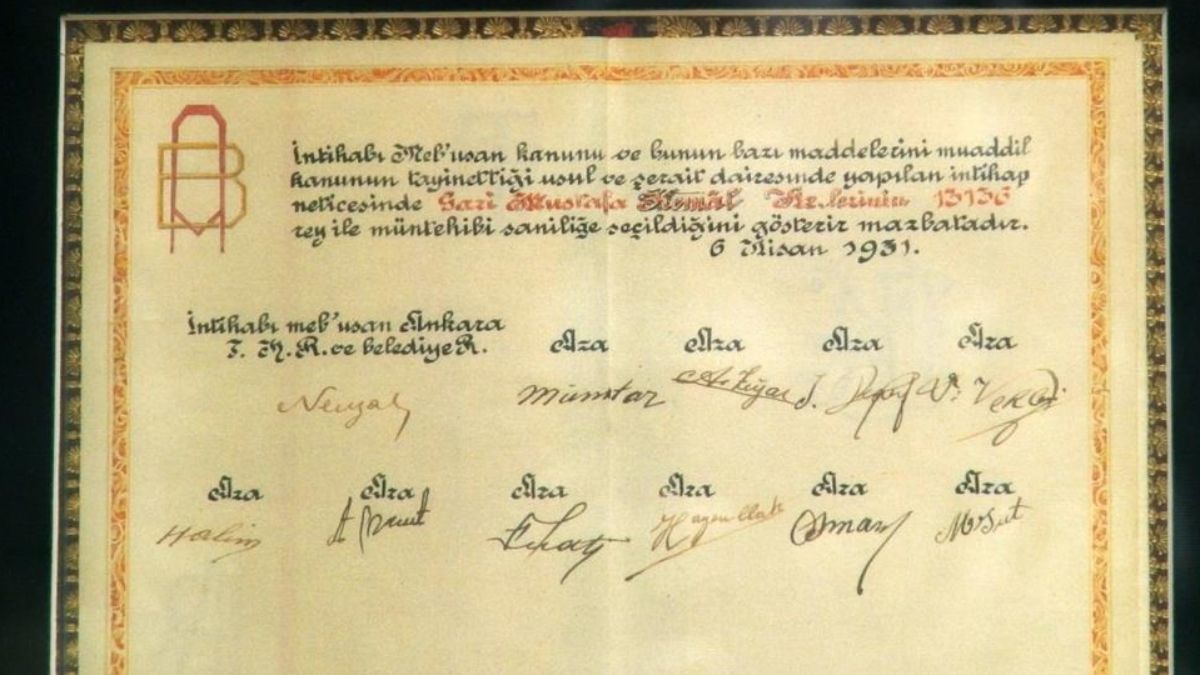 İntihabı Meb'usan kanunu ve bunun bazı maddelerini muaddil
kanunun tayinettiği usul ve şerait dairesinde yapılan intihap
neticesinde Gazi Mustafa Kemâl Hz.lerinin 13136
rey ile müntehibi saniliğe seçildiğini gösterir mazbatadır.
6 Nisan 1931.
İntihabı meb'usan Ankara
T. H. R. ve belediye R.
Aza Aza Aza Aza
Mümtaz
Aza Aza Aza Aza Aza Aza
Halim Osman